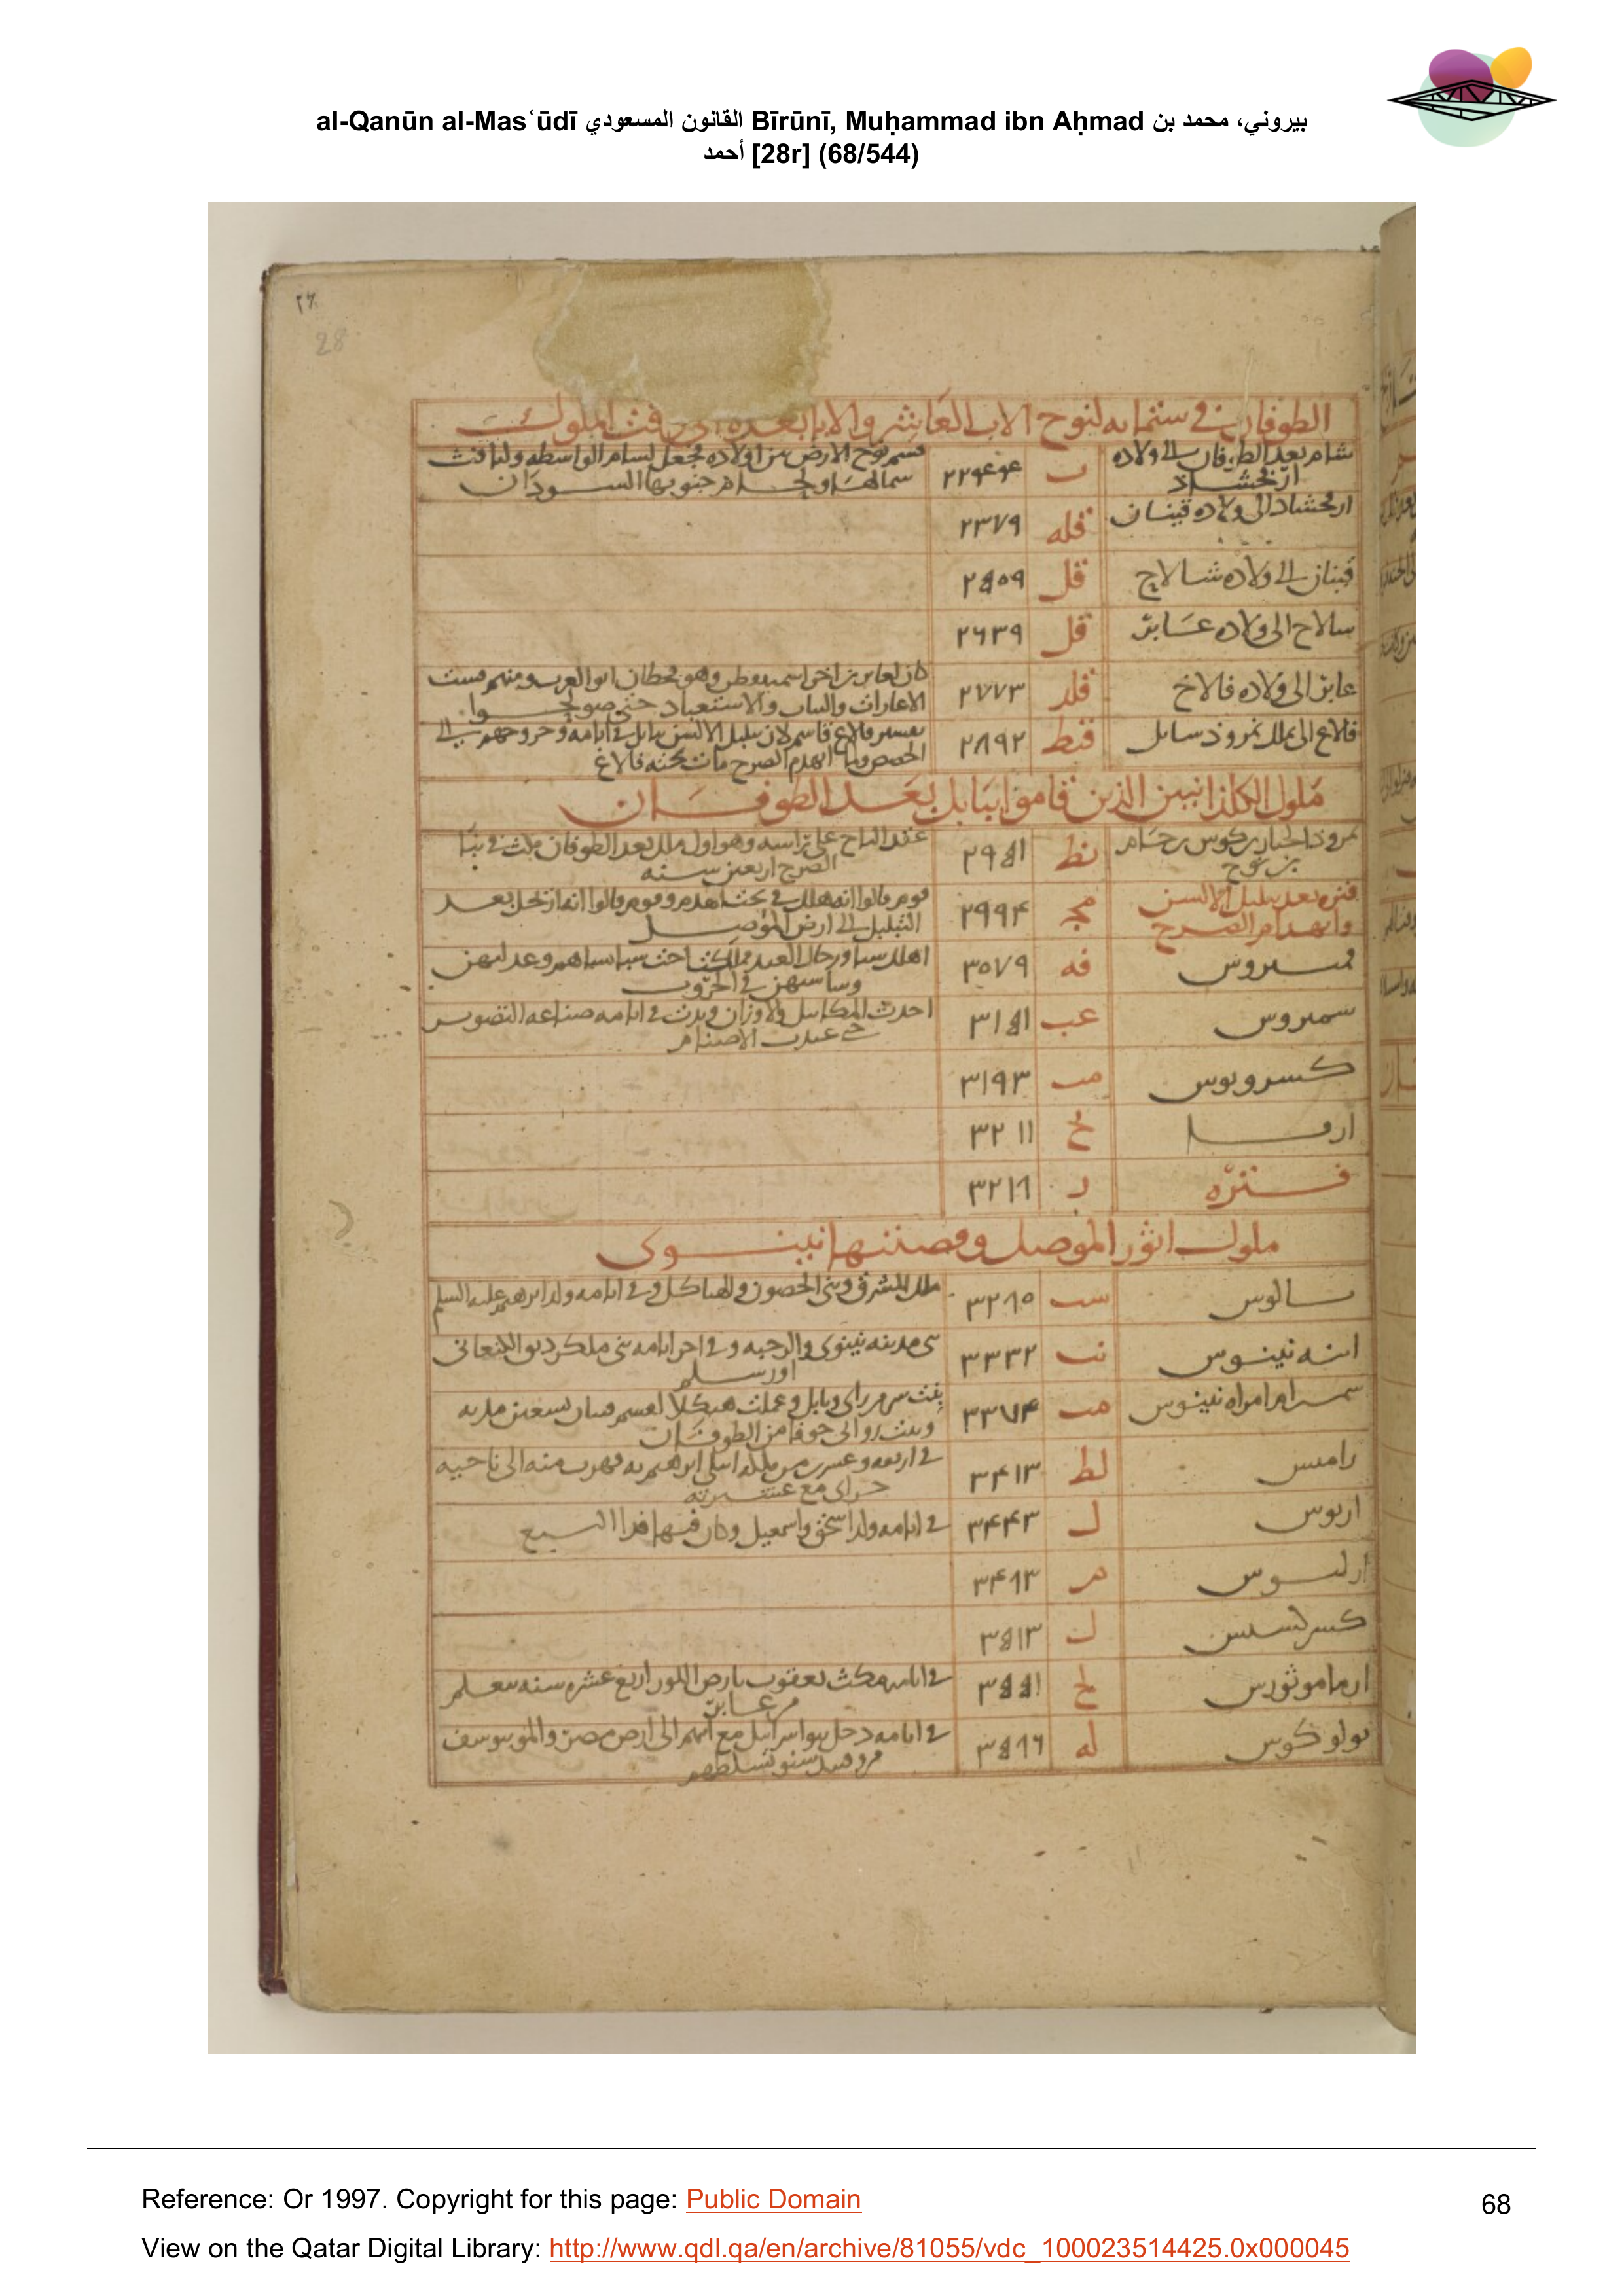 al-Qanūn al-Masʿūdī القانون المسعودي Bīrūnī, Muḥammad ibn Aḥmad بيروني، محمد بن
أحمد [28r] (68/544)
28
الطوفان في ستمايه لنوح الاب العاشر والابا بعده الى وقت الملوك
شام بعد الطوفان الى ولاده
ارفخشاد
ب
قسم نوح الارض بين اولاده فجعل لسام الواسطه وليافث
شمالها ولحام جنوبها السودان
ارفخشاد الى ولاده قينان
قله
٢٣٧٩
قينان الى ولاده شالاح
قل
٢٥٠٩
سالاح الى ولاده عابر
قل
٢٦٣٩
عابر الى ولاده فالاخ
قلد
٢٧٧٣
كان لعابر بن اخر اسمه يوطن وهو قحطان ابو العرب ومنهم
الاعارات والاستعباد حتى
فالاع الى ملك نمروذ ببابل
قيط
٢٨٩٢
تفسير فالاع قاسم لان تبلبل الالسن ببابل في ايامه
ولما انهدم الصرح مات تحته فالاغ
ملوك الكلذانيين الذين قاموا ببابل بعد الطوفان
نمروذ الجبار بن كوس بن حام
بن نوح
نط
٢٩٥١
عقد التاج على راسه وهو اول ملك بعد الطوفان مكث في بنا
الصرح اربعين سنه
فتره بعد تبلبل الالسن
وانهدام الصرح
مج
٢٩٩٤
قوم قالوا انه هلك في تحت الهدم وقوم قالوا انه ارتحل بعد
التبلبل الى ارض الموصل
قمبيروس
فه
٣٠٧٩
وساسهن في الحروب
سميروس
عب
٣١٥١
احدث المكاييل والاوزان وبدت في ايامه صناعه التصوير
حتى عبدت الاصنام
كسرونوس
مب
٣١٩٣
ارفا
يح
٣٢١١
فتره
٣٢١٨
ملوك اثور الموصل وقصبتها نينوى
سالوس
سب
٣٢٨٠
ملك المشرق وبنى الحصون والهياكل وفي ايامه ولد ابرهيم عليه السلم
ابنه نينوس
نب
٣٣٣٢
بنى مدينه نينوى والرحبه وفي اخر ايامه بنى ملكزديق الكنعانى
اورسلم
سميرام امراه نينوس
مب
٣٣٧٤
بنت سر من راى وبابل وعملت هيكلا
وبنت روابى خوفا من الطوفان
رامس
لط
٣٤١٣
في اربعه وعشرين من ملكه ابتلى ابرهيم به فهرب منه الى ناحيه
حران مع عشيرته
اريوس
ل
٣٤٤٣
في ايامه ولد اسحق واسمعيل وكان فيها فدا الذبيح
ارليوس
م
٣٤٨٣
كسرلسس
ل
٣٥١٣
ارماموثورس
لح
٣٥٥١
في ايامه مكث يعقوب بارض النور اربع عشره سنه يتعلم
من عابر
بولوكوس
له
٣٥٨٦
في ايامه دخل بنو اسرايل مع ابيهم الى ارض مصر
Reference: Or 1997. Copyright for this page: Public Domain
68
View on the Qatar Digital Library: http://www.qdl.qa/en/archive/81055/vdc_100023514425.0x000045